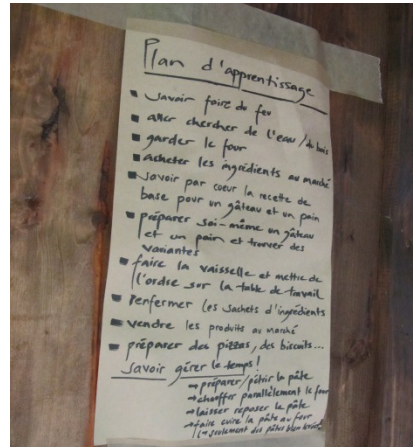 Plan d'apprentissage
▪ savoir faire du feu
▪ aller chercher de l'eau / du bois
▪ garder le four
▪ acheter les ingrédients au marché
▪ savoir par coeur la recette de
base pour un gâteau et un pain
▪ préparer soi-même un gâteau
et un pain et trouver des
variantes
▪ faire la vaisselle et mettre de
l'ordre sur la table de travail
▪ renfermer les sachets d'ingrédients
▪ vendre les produits au marché
▪ préparer des pizzas, des biscuits...
savoir gérer le temps!
→ préparer/pétrir la pâte
→ chauffer parallèlement le four
→ laisser reposer la pâte
→ faire cuire la pâte au four
(→ seulement des pâtes bien levées)